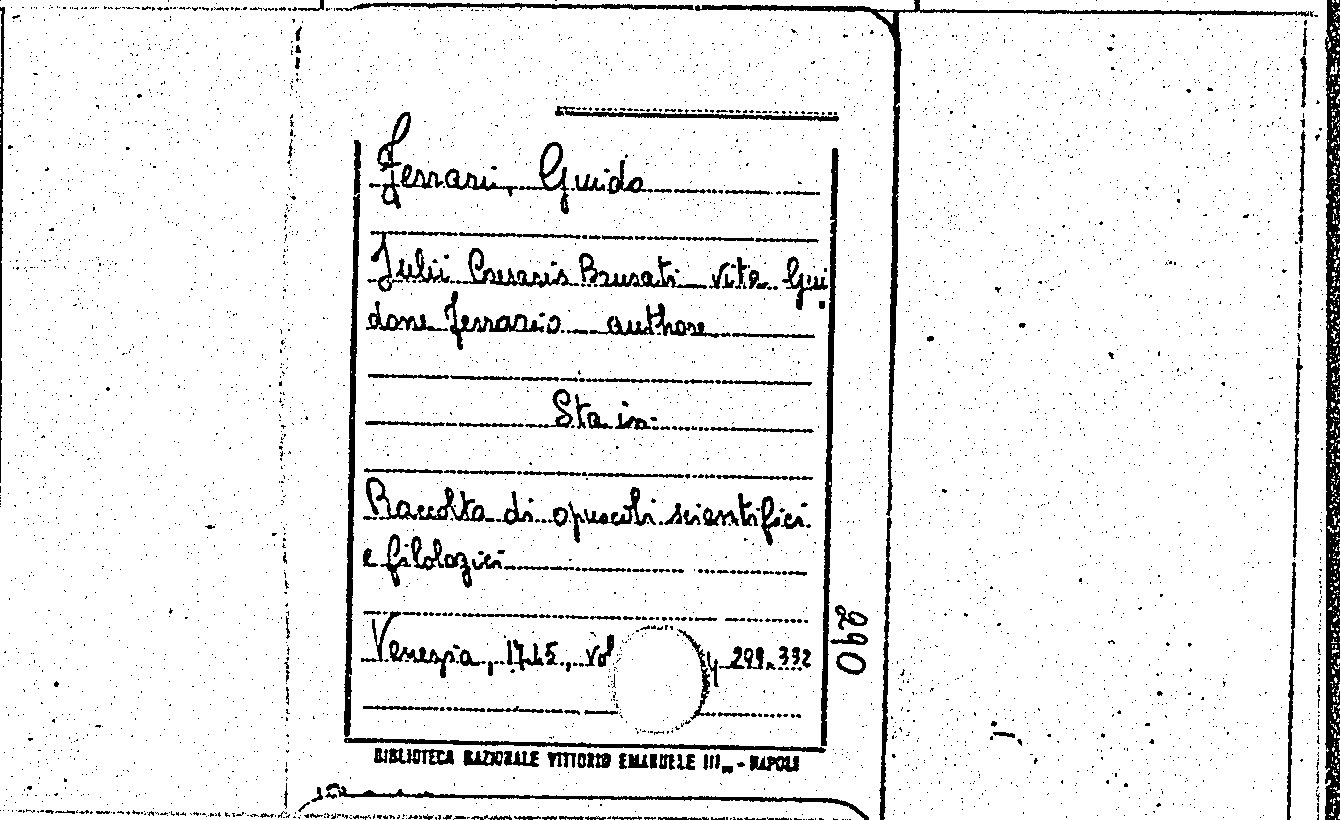 Ferrari, Guido
Julii Caesaris Brusati vita Gui
done Ferrario authore
Sta in:
Raccolta di opuscoli scientifici
e filologici
Venezia, 1745, vol
290
BIBLIOTECA NAZIONALE VITTORIO EMANUELE III - NAPOLI